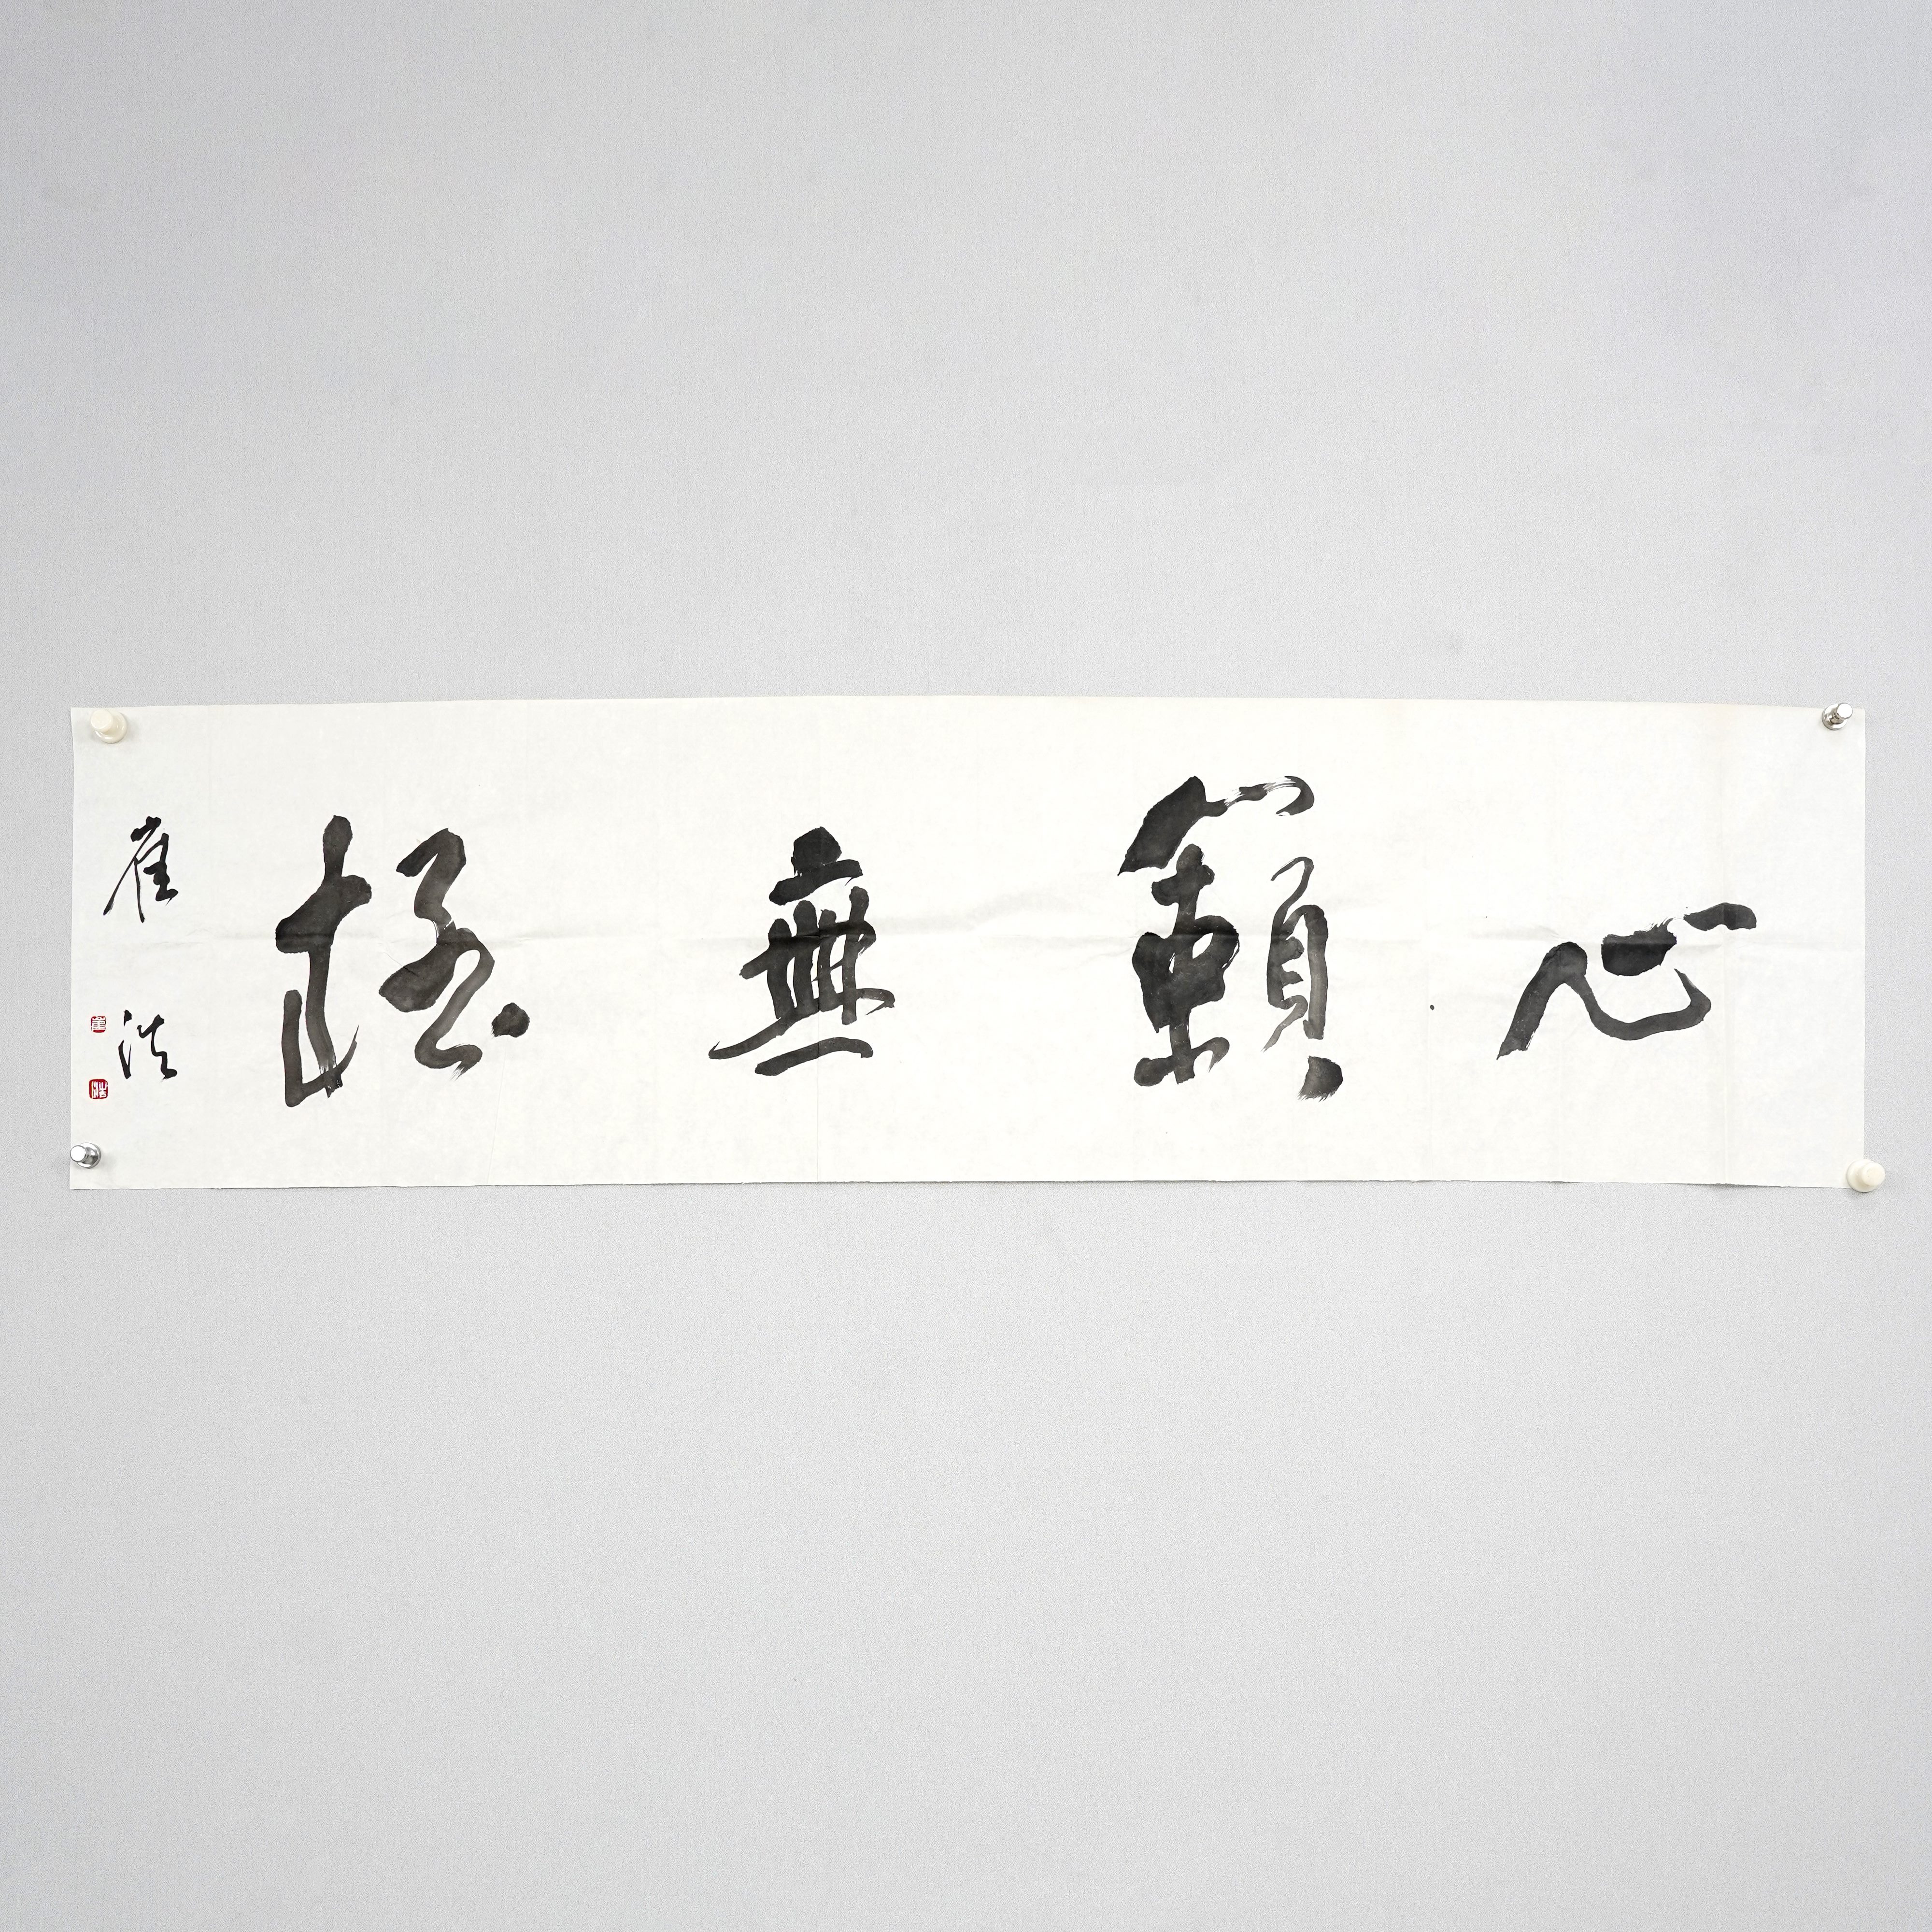 心籟無極
崔